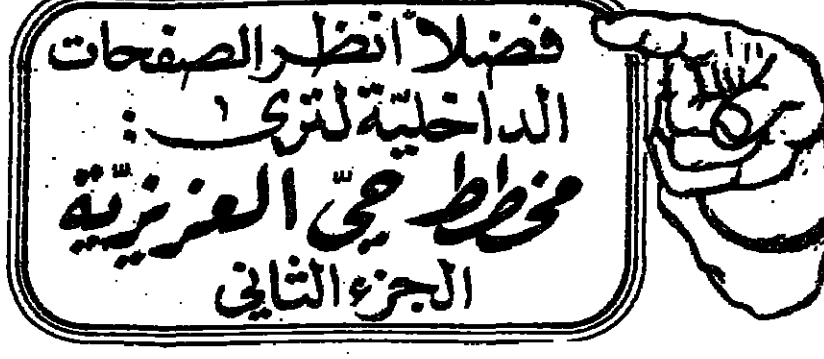 فضلاً انظر الصفحات
الداخليّة لترى :
مخطط حيّ العزيزيّة
الجزء الثاني